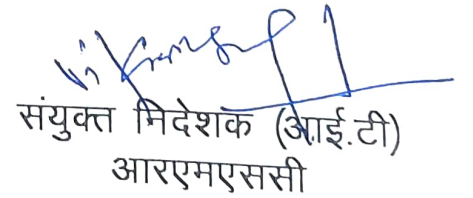 संयुक्त निदेशक (आई.टी)
आरएमएससी